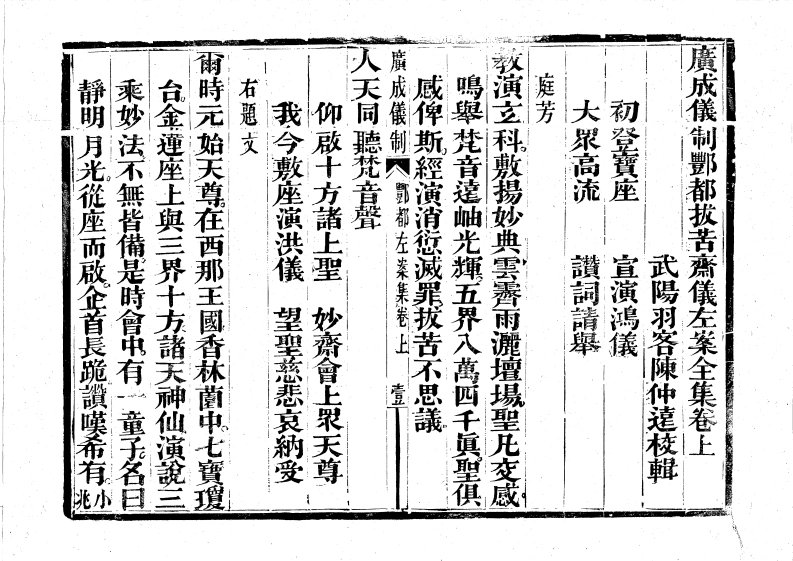 廣成儀制酆都拔苦齋儀左案全集卷上
武陽羽客陳仲遠校輯
初登寶座　宣演鴻儀
大眾高流　讚詞請舉
庭芳
教演立科。敷揚妙典。雲霽雨灑壇場。聖凡交感。
鳴舉梵音遠岫光輝。五界八萬四千眞。聖俱
感俾斯。經演消愆滅罪。拔苦不思議
廣成儀制　酆都左案集卷上　壹
人天同聽梵音聲
仰啟十方諸上聖　妙齋會上眾天尊
我今敷座演洪儀　望聖慈悲哀納受
右題文
爾時元始天尊。在西那王國香林薗中。七寶瓊
台。金蓮座上與三界十方。諸天神仙演說三
乘妙法。不無皆備是時會中。有一童子。名曰
靜明月光。從座而啟。企首長跪讚嘆希有。小兆